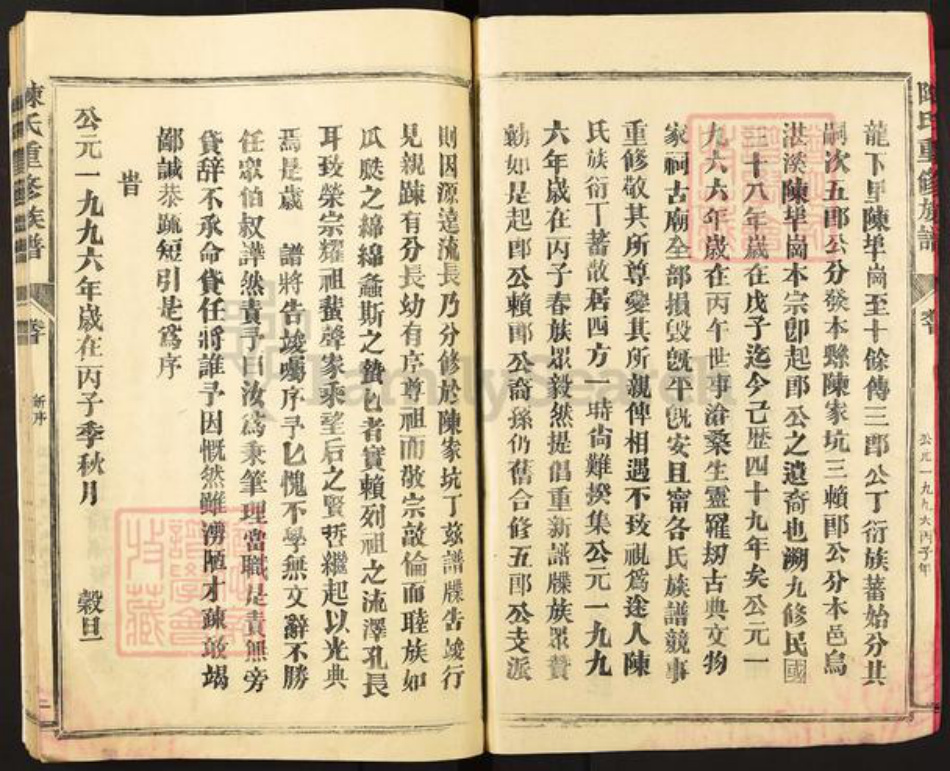 陳氏重修族譜
公元一九九六丙子年
龍下里陳埠崗至十餘傳三郎公丁衍族蕃始分其
嗣次五郎公分發本縣陳家坑三賴郎公分本邑烏
湛溪陳埠崗本宗即起郎公之遺裔也溯九修民國
三十八年歲在戊子迄今己歷四十九年矣公元一
九六六年歲在丙午世事滄桑生靈罹刼古典文物
家祠古廟全部損毀旣平旣安且甯各氏族譜競事
重修敬其所尊愛其所親俾相遇不致視爲途人陳
氏族衍丁蕃散居四方一時尙難揆集公元一九九
六年歲在丙子春族眾毅然提倡重新譜牒族眾贊
勷如是起郎公賴郎公裔孫仍舊合修五郎公支派
則因源遠流長乃分修於陳家坑丁茲譜牒告竣行
見親疎有分長幼有序尊祖而敬宗敦倫而睦族如
瓜瓞之綿綿螽斯之蟄蟄者實賴列祖之流澤孔長
耳致榮宗耀祖蜚聲家乘望后之賢哲繼起以光典
焉是歲 譜將告竣囑序予予愧不學無文辭不勝
任眾伯叔譁然責予曰汝爲秉筆理當職是責無旁
貸辞不承命貸任將誰予因慨然雖譾陋才疎敢竭
鄙誠恭疏短引是爲序
旹
公元一九九六年歲在丙子季秋月 穀旦
陳氏重修族譜
新序
FamilySearch